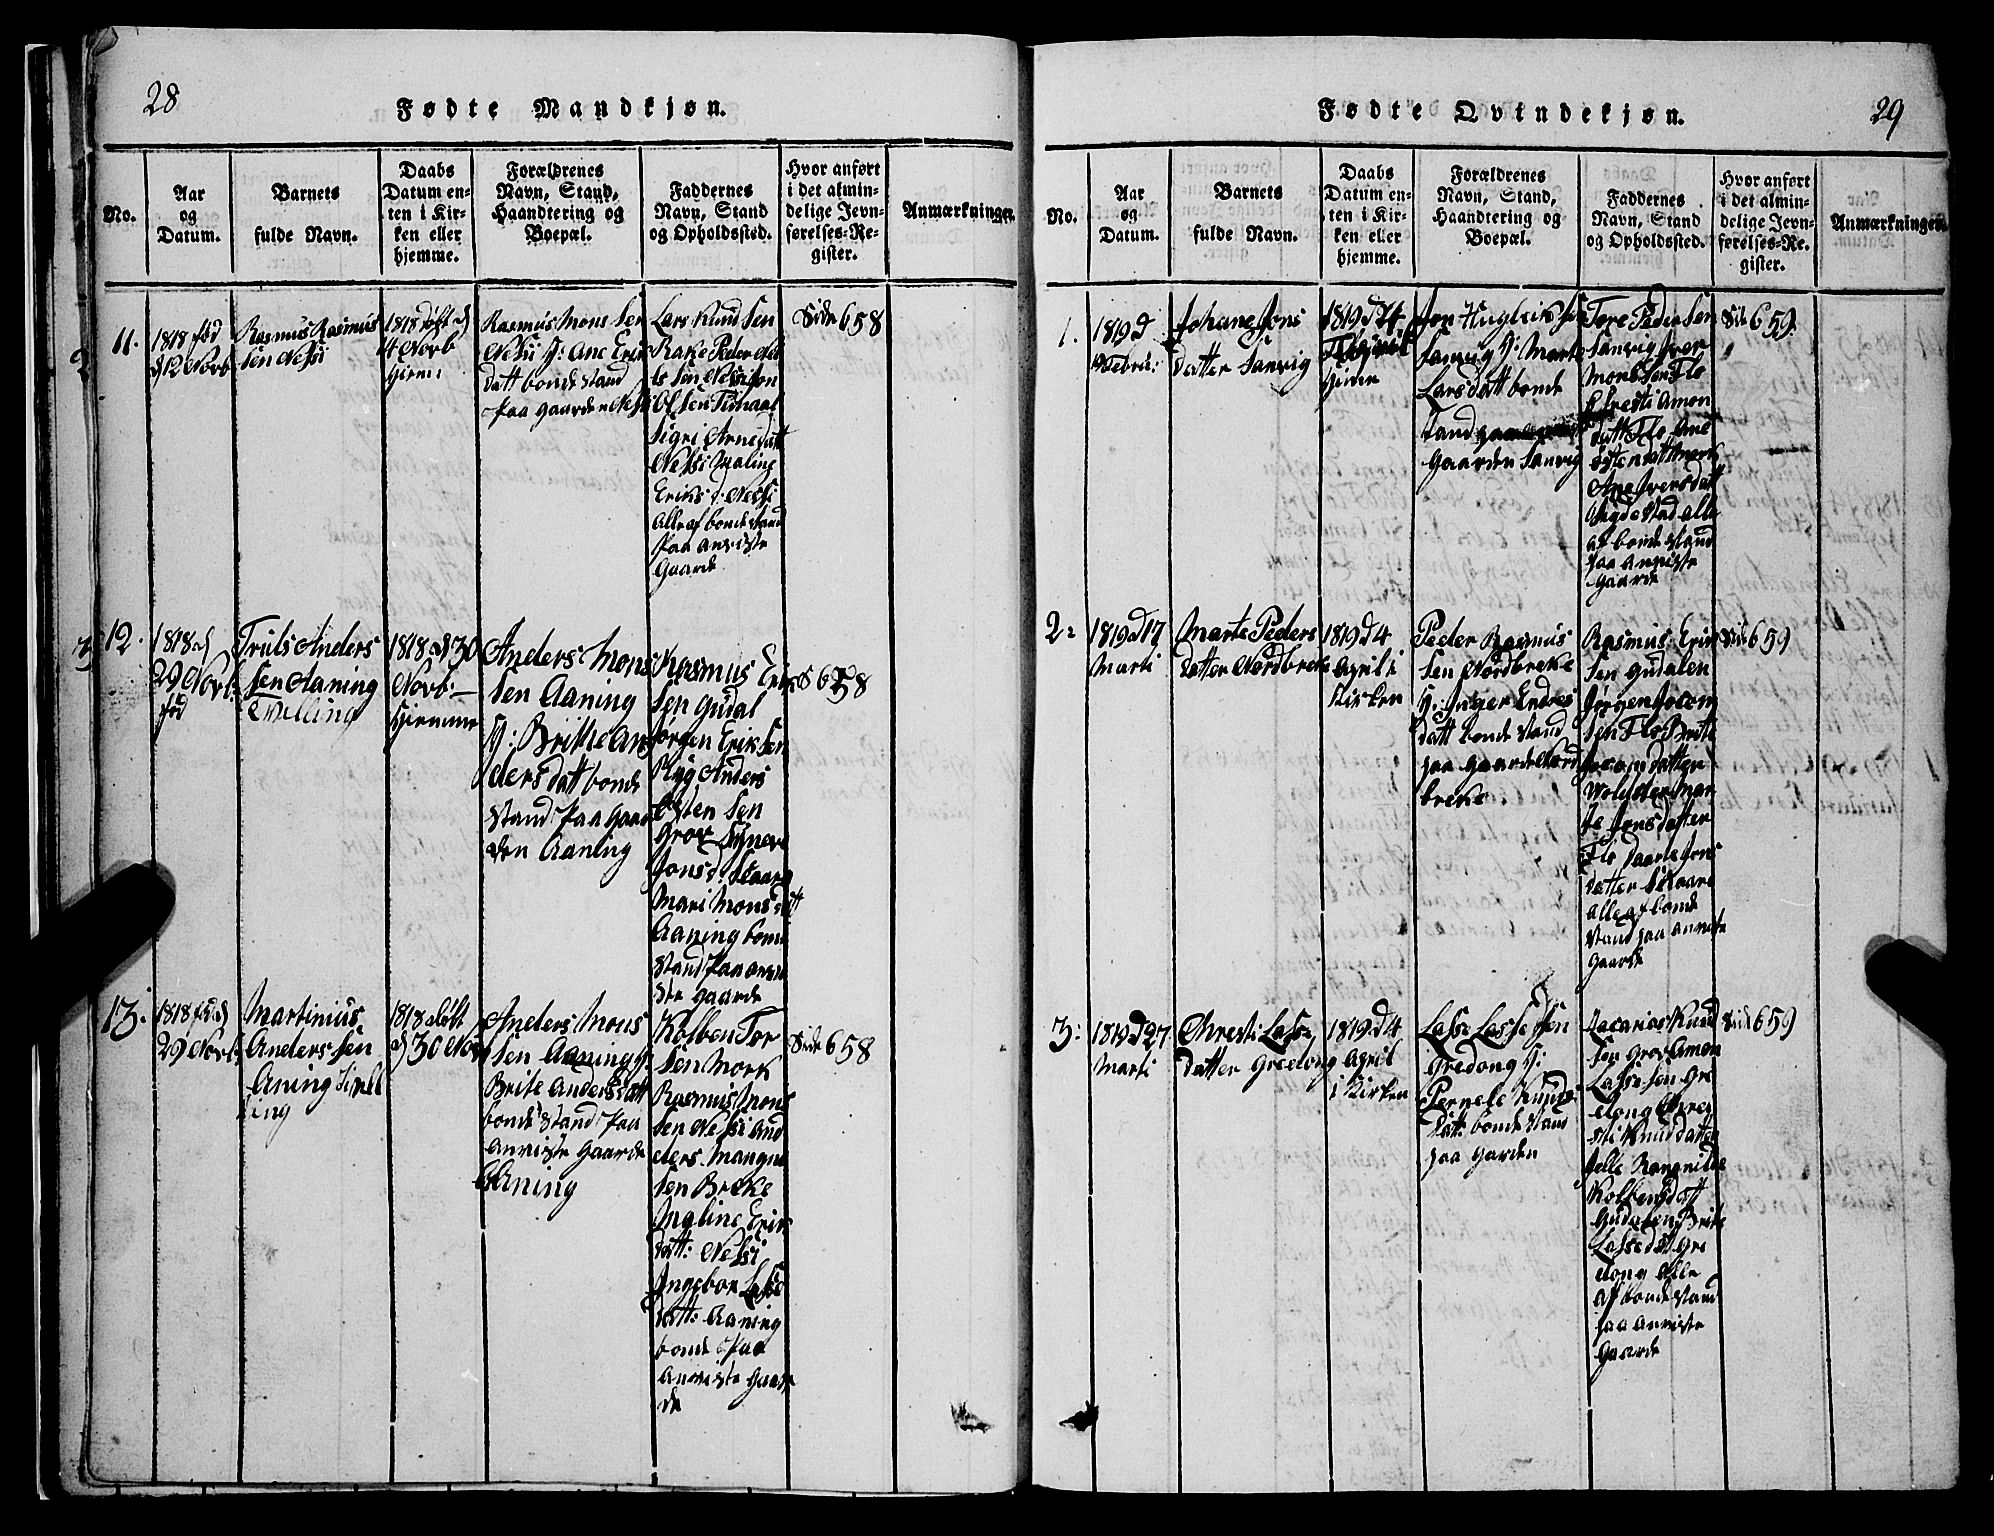 28
Fødte Mandkjøn.
No.
Aar
og
Datum.
Barnets
fulde Navn.
Daabs
Datum en-
ten i Kir-
ken eller
hjemme.
Forældrenes
Navn, Stand,
Haandtering og
Boepæl.
Faddernes
Navn, Stand
og Opholdssted.
Hvor anført
i det almin-
delige Jevn-
førelses-Re-
gister.
Anmærkninger.
11.
1818 fød
d 12 Novb
Rasmus Rasmus
sen Nessi
1818 døbt d
Novb
Hiem:
Rasmus Mons Sen
Nessi H: Ane Erics
datt bonde stand
Paa gaarden Nessi
Lars Knud Sen
Rake Peder
Sen Nessi Jon
Ol Sen Timaal
Sigri Arne datt
Nessi Maline
Eriks d: Nessi
Alle af bonde stand
Paa anviste
Gaarde
Side 658
12.
1818 d
29 Novb:
fød
Truls Anders
Sen Aaning
Tvilling
1818 d 30
Novb:
Hiemme
Anders Mons
Sen Aaning
H: Brithe An
ders datt bonde
Stand Paa Gaar
den Aaning
Rasmus Erics
Sen Gudal
Jørgen Erik Sen
Ryg Anders
Østen Sen
Grov
Jons d: Skaare
Mari Mons datt
Aaning bonde
Stand Paa anvi
ste Gaarde
S 658
13.
1818 fød d
29 Novb:
Martinius
Anders Sen
Aning Tvill
ing
1818 døbt
d 30 Nov
Anders Mons
Sen Aaning H:
Brite Anders datt
bonde Stand Paa
Anviste Gaarde
Aaning
Kolben Tor
Sen Mork
Rasmus Mons
Sen Nessi And
ders Mangnu
Sen Breke
Maline Erik
datt: Nessi
Ingebor Lasse
datt: Aaning
bonde Paa
Anviste Gaar
de
Side 658
29
Fødte Qvindekjøn.
No.
Aar
og
Datum.
Barnets
fulde Navn.
Daabs
Datum en-
ten i Kir-
ken eller
hjemme.
Forældrenes
Navn, Stand,
Haandtering og
Boepæl.
Faddernes
Navn, Stand
og Opholdssted.
Hvor anført
i det almin-
delige Jevn-
førelses-Re-
gister.
Anmærkninger.
1.
1819 d
Febru:
Johane Jons
datter Sanvig
1819 d 14
Hiem
Jon Hugleik Sen
Sanvig H: Marte
Lars datt bonde
Stand
Gaarden Sanvig
Tore Peder Sen
Sanvig Iver
Mons Sen Flo
Kresti Amon
datt Flo Ane
Østen datt Mork
Ane Ivers datt
Stad alle
af bonde stand
paa anviste
Gaarde
Side 659
2:
1819 d 17
Marti
Marte Peders
datter Nordbreke
1819 d 4
April i
Kirken
Peder Rasmus
Sen Nordbreke
H: Inger Endres
datt bonde Stand
paa Gaarde Nord
breke.
Rasmus Erik
Sen Gudalen
Jørgen Jocom
Sen Flo Brite
Jocom datter
Mar
Jonsdatter
Flo Jons
datter Skaare
alle af bonde
Stand paa anviste
Gaarde
Side 659
3:
1819 d 27
Marti
Chresti Lasse
datter Gredong
1819 d 4
April
i Kirken
Lasse Lasse Sen
Gredong H:
Pernele Knuds
datt: bonde Stand
paa Garden
Zacarias Knud
Sen Grov Amon
Lasse Sen Gre
dong Chre
sti Knud datter
Rangnilde
Kolbens datt
Gudalen Brite
Lasse datt Gre
dong Alle
af bonde Stand
paa Anviste
Gaarde
Side 659